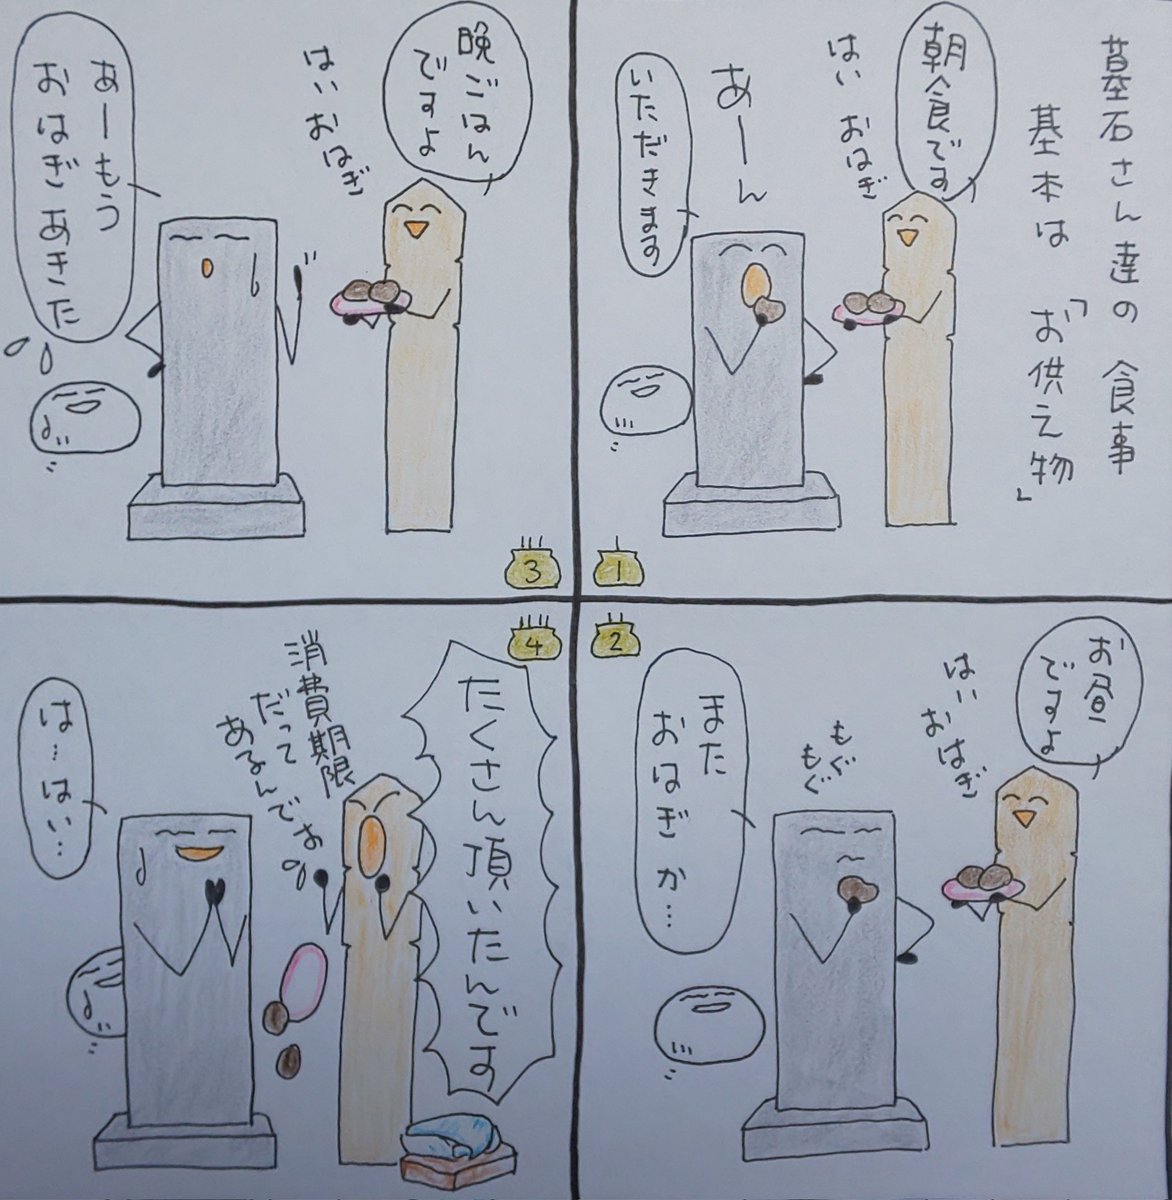 墓石さん達の食事
基本は「お供え物」
朝食です
はい おはぎ
あーん
いただきます
1
お昼
ですよ
はい
おはぎ
もぐ
もぐ
また
おはぎか…
2
晩ごはん
ですよ
はい おはぎ
あーもう
おはぎあきた
3
たくさん頂いたんです
消費期限
だって
あるんでお
は…はい…
4